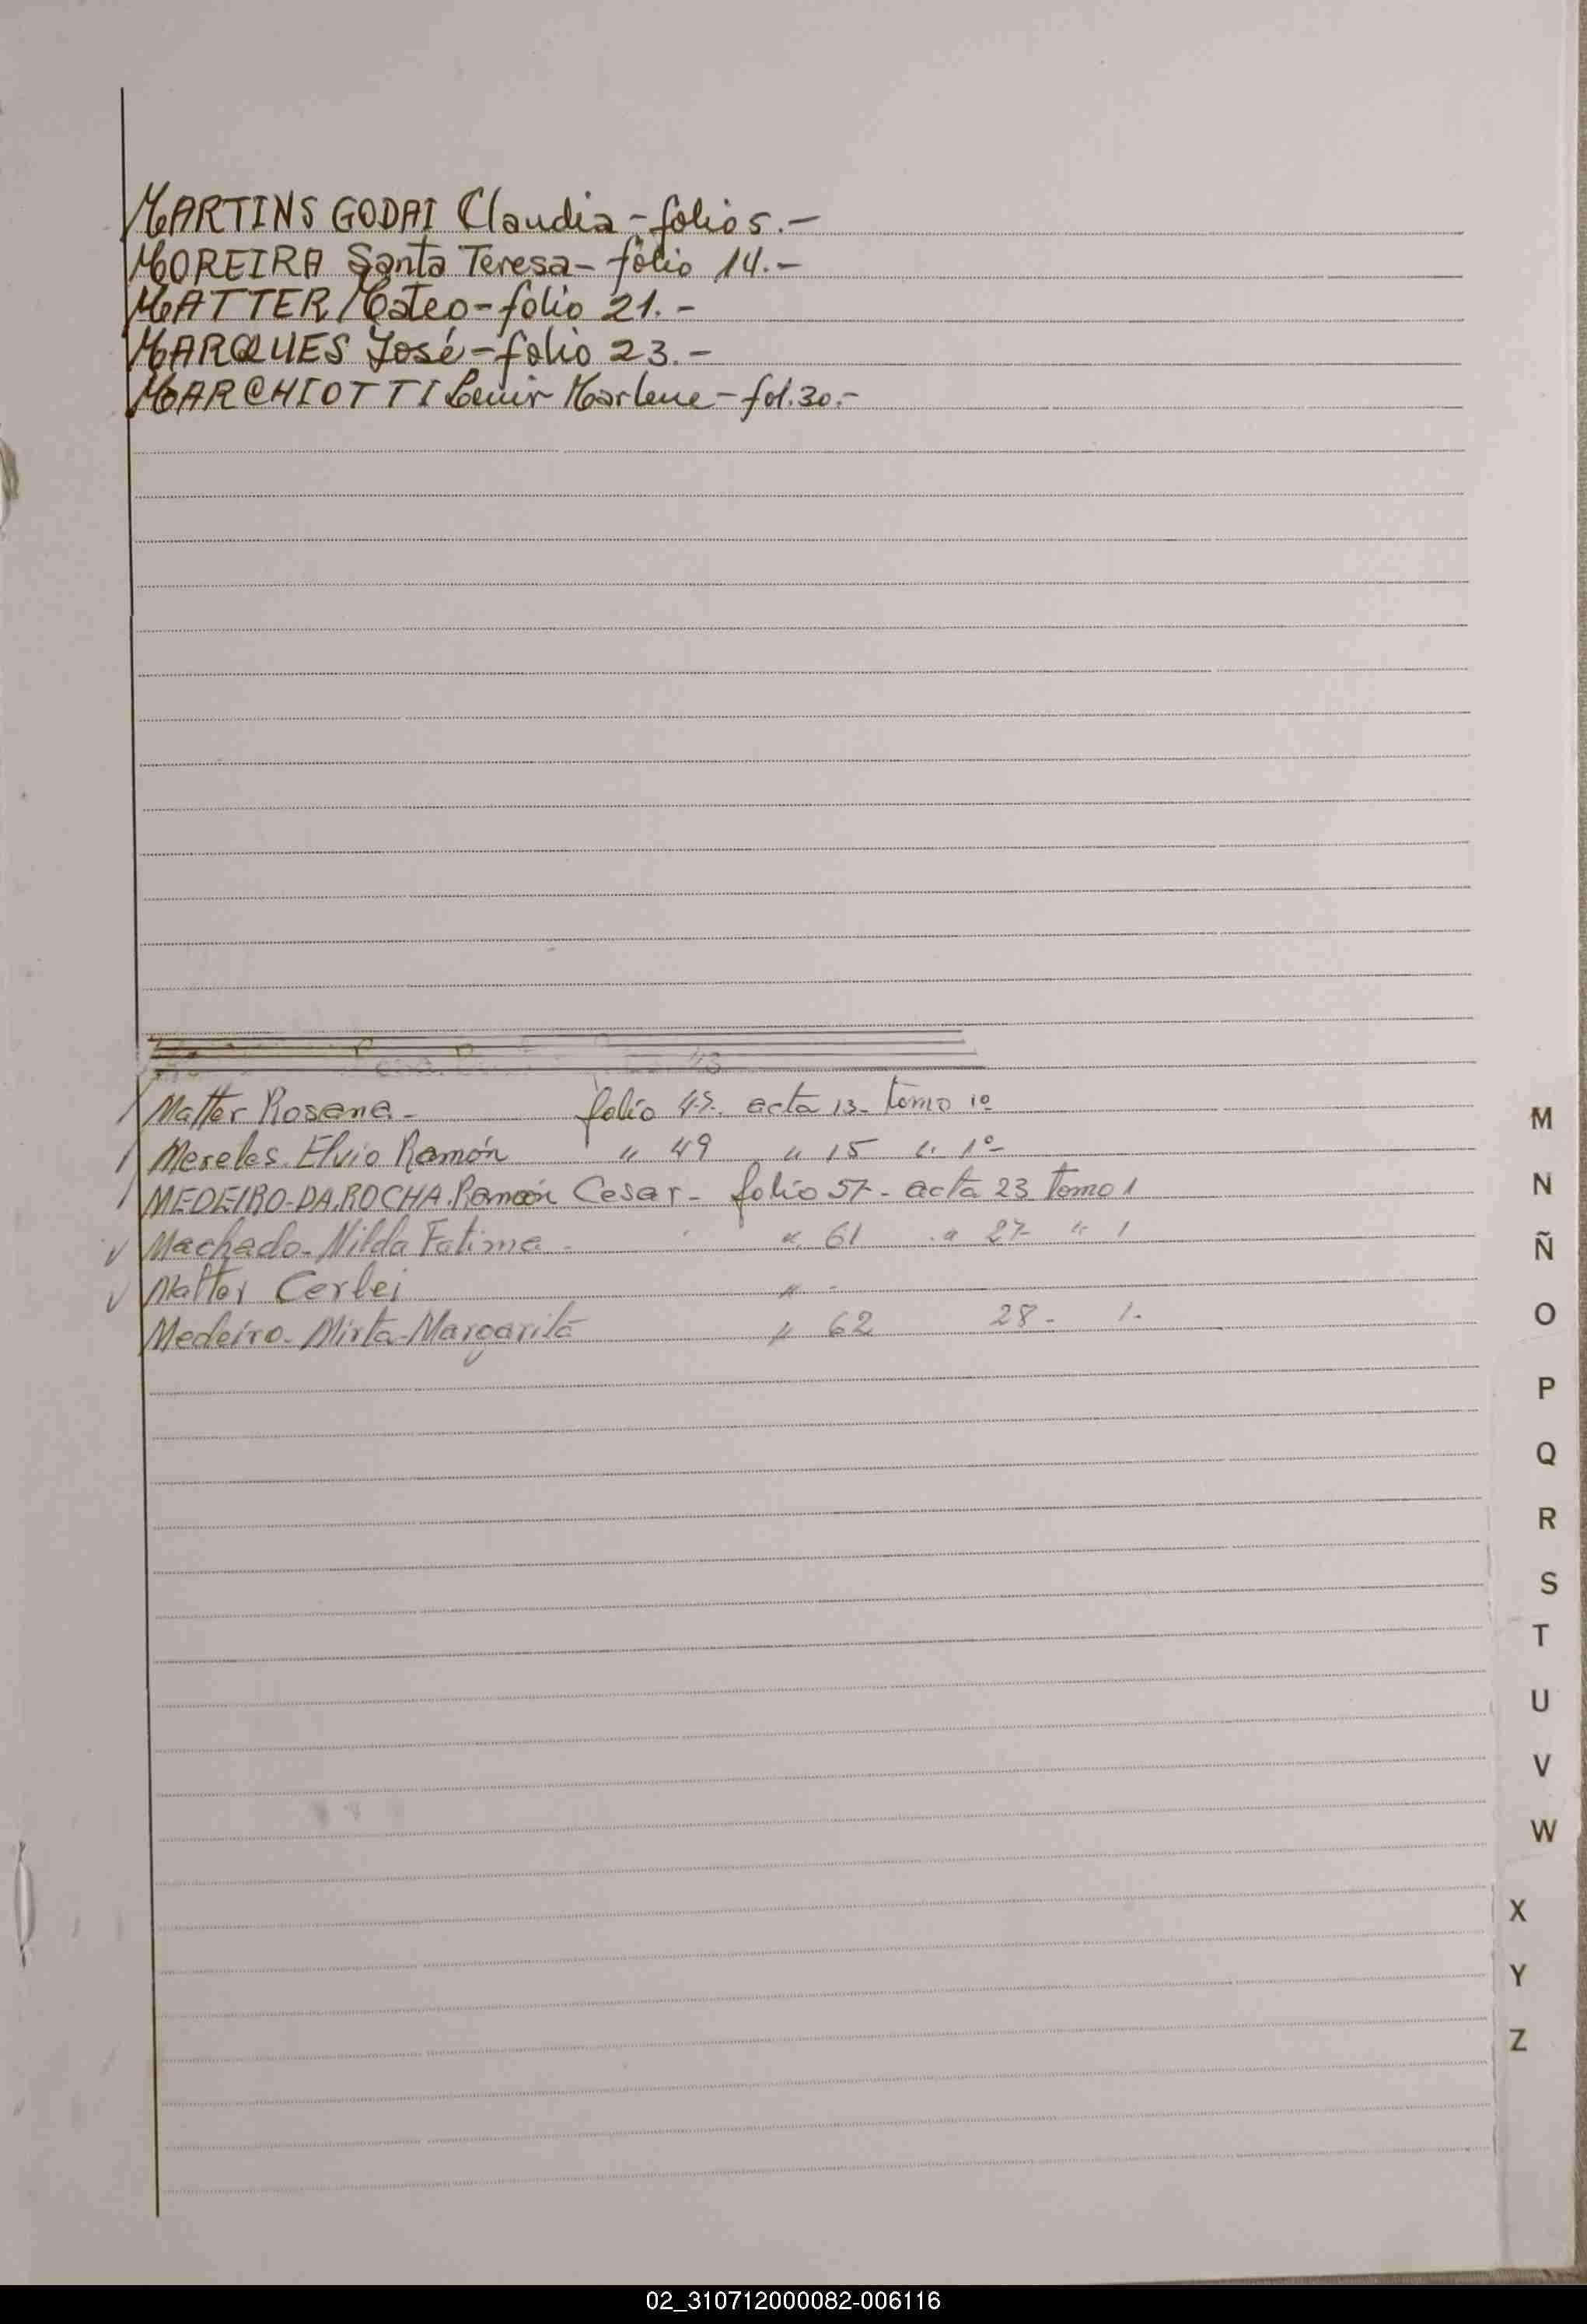 MARTINS GODAI Claudia - folio 5.-
MOREIRA Santa Teresa - folio 14.-
MATTER Mateo - folio 21.-
MARQUES José - folio 23.-
MARCHIOTTI Lenir Marlene - fol. 30.-
Matter Rosana - folio 45. acta 13 - tomo 1º
Mereles Elvio Ramón " 49 " 15 " 1º-
MEDEIRO-DA.ROCHA.Ramón Cesar - folio 57 - acta 23 Tomo 1
Machado - Nilda Fatima - " 61 " 27 " 1
Matter Cerlei " -
Medeiro - Mirta - Margarita " 62 28 - 1.
M
N
Ñ
O
P
Q
R
S
T
U
V
W
X
Y
Z
02_310712000082-006116